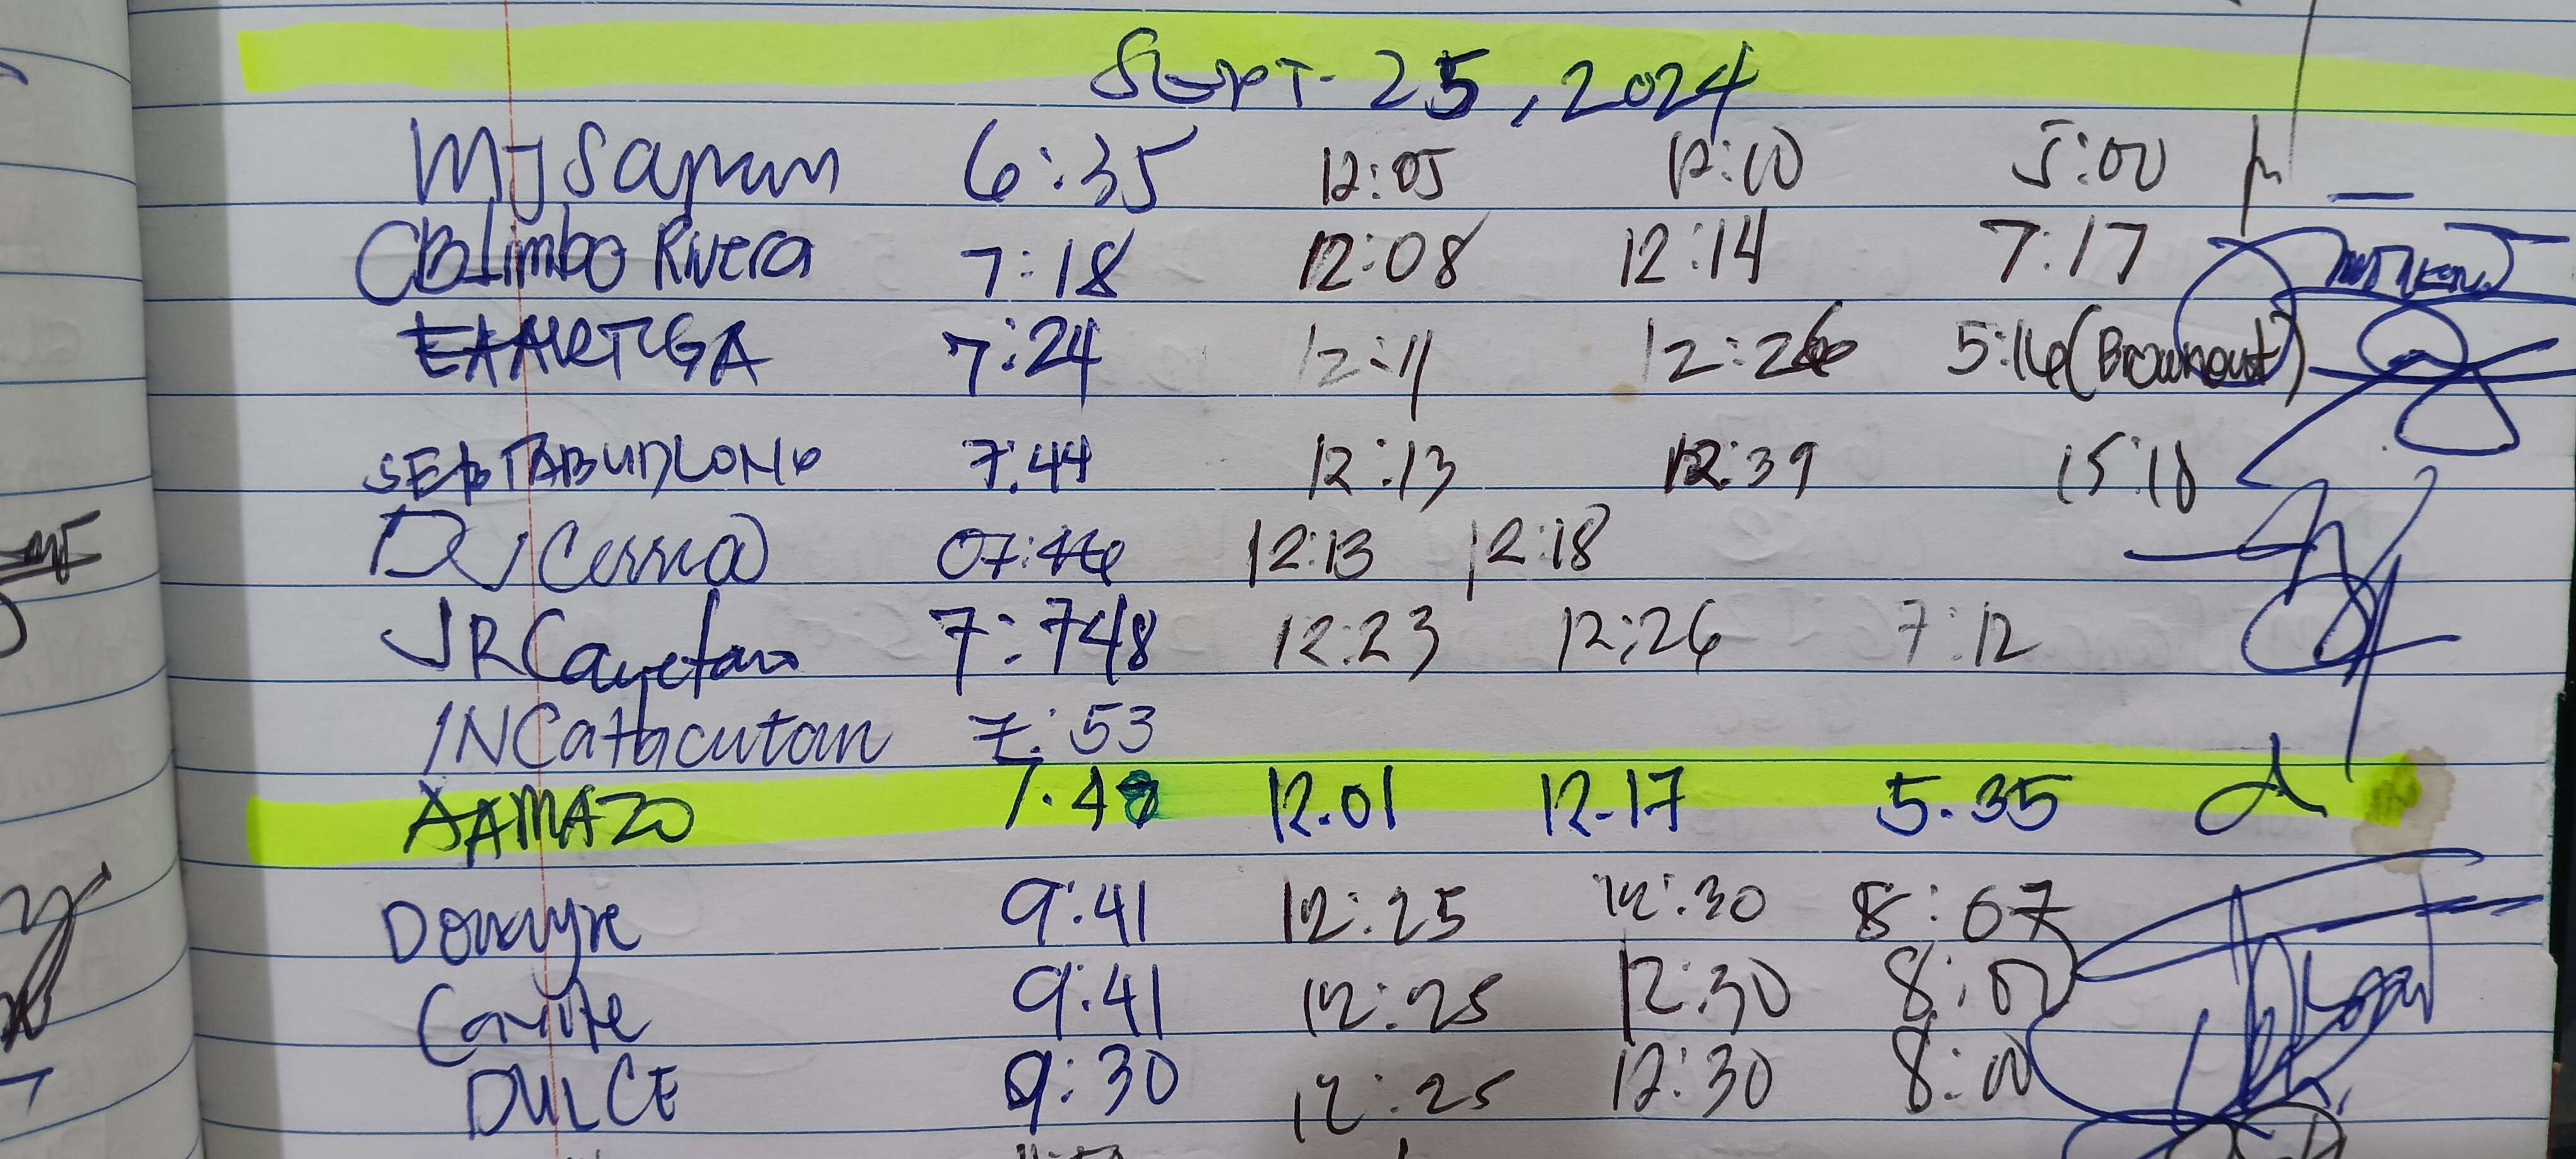 Sept. 25, 2024
MJ Sapun 6:35 12:05 12:10 5:00
CB Limbo Rivera 7:18 12:08 12:14 7:17
7:24 12:11 12:26 5:16 (Brownout)
7:44 12:13 12:39 15:18
07:46 12:13 12:18
JR Cayetano 7:748 12:23 12:26 7:12
INCatacutan 7:53
AAMAZO 7.48 12.01 12.17 5.35
9:41 12:25 12:30 8:07
9:41 12:25 12:30
DULCE 9:30 12:25 12:30 8:00